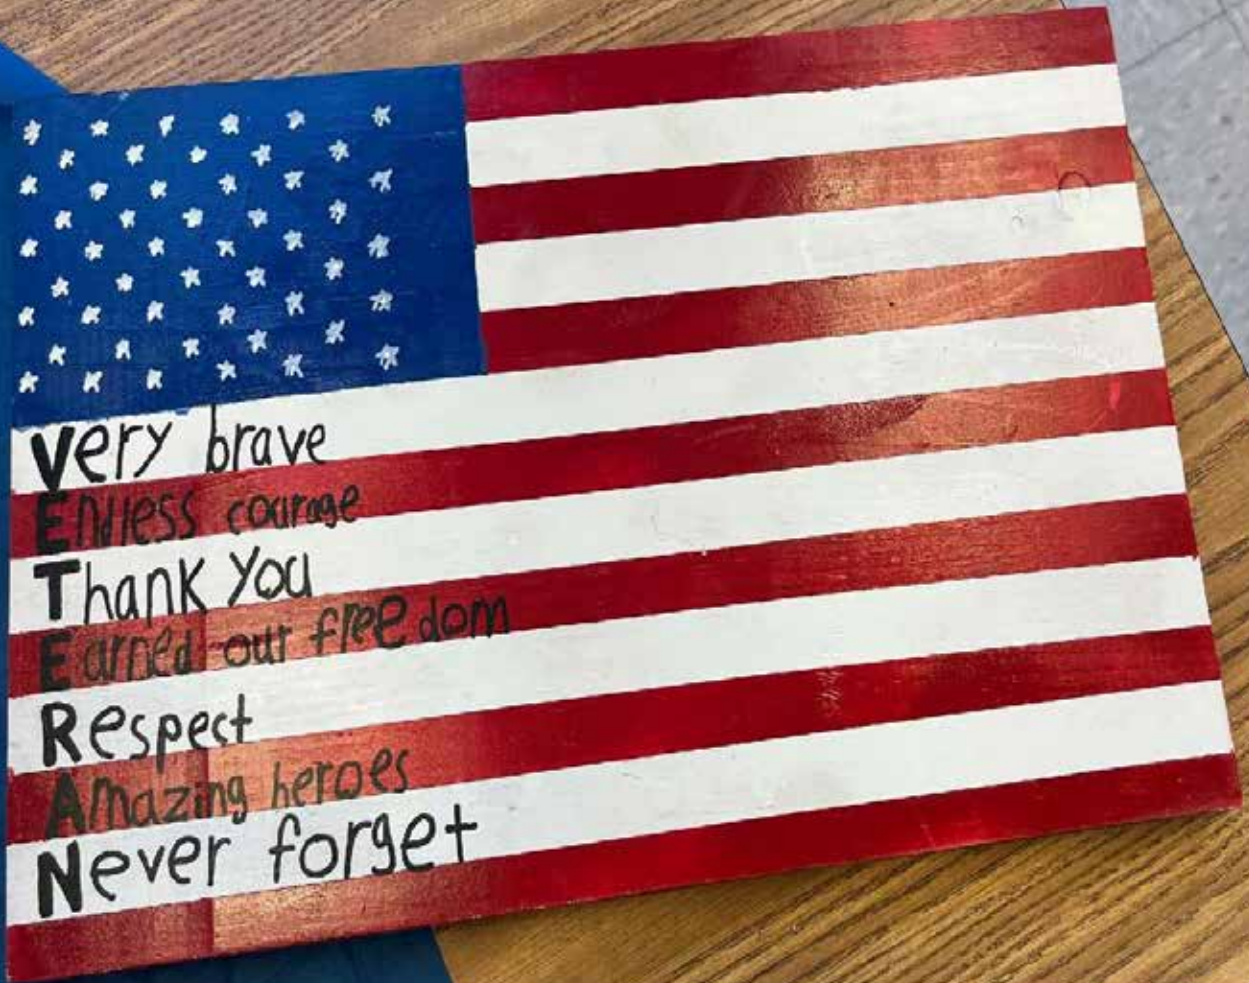 Very brave
Endless courage
Thank You
Earned our freedom
Respect
Amazing heroes
Never forget